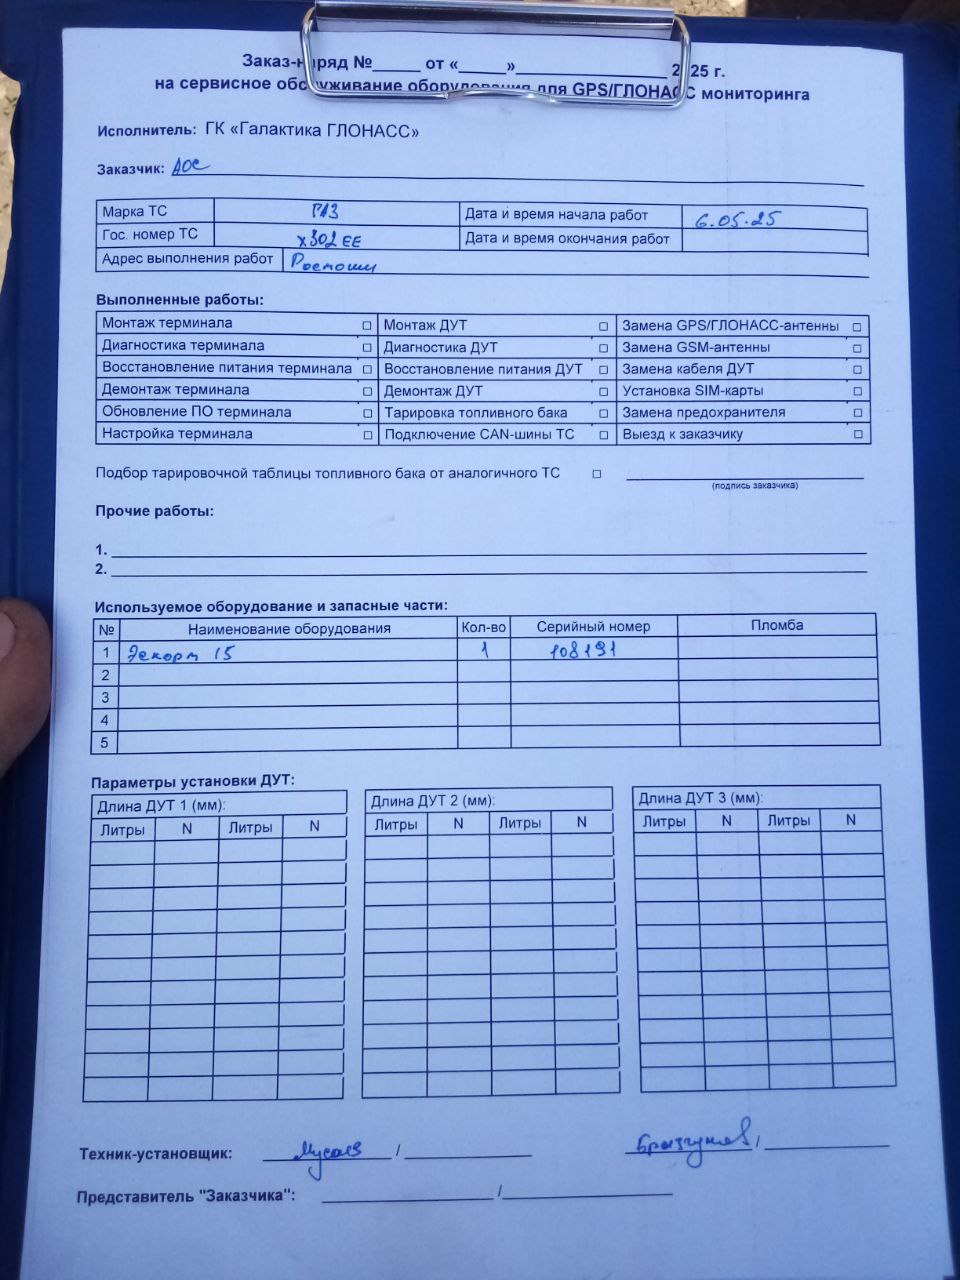 Заказ-наряд №_____ от «_____»________________ 2025 г.
на сервисное обслуживание оборудования для GPS/ГЛОНАСС мониторинга
Исполнитель: ГК «Галактика ГЛОНАСС»
Заказчик: АОС
Марка ТС ГАЗ Дата и время начала работ 6.05.25
Гос. номер ТС х302ЕЕ Дата и время окончания работ
Адрес выполнения работ
Выполненные работы:
Монтаж терминала □ Монтаж ДУТ □ Замена GPS/ГЛОНАСС-антенны □
Диагностика терминала □ Диагностика ДУТ □ Замена GSM-антенны □
Восстановление питания терминала □ Восстановление питания ДУТ □ Замена кабеля ДУТ □
Демонтаж терминала □ Демонтаж ДУТ □ Установка SIM-карты □
Обновление ПО терминала □ Тарировка топливного бака □ Замена предохранителя □
Настройка терминала □ Подключение CAN-шины ТС □ Выезд к заказчику □
Подбор тарировочной таблицы топливного бака от аналогичного ТС □
(подпись заказчика)
Прочие работы:
1.
2.
Используемое оборудование и запасные части:
№ Наименование оборудования Кол-во Серийный номер Пломба
1 Эскорт 15 1 108191
2
3
4
5
Параметры установки ДУТ:
Длина ДУТ 1 (мм): Длина ДУТ 2 (мм): Длина ДУТ 3 (мм):
Литры N Литры N Литры N Литры N Литры N Литры N
Техник-установщик: Мусаев /
Представитель "Заказчика": /